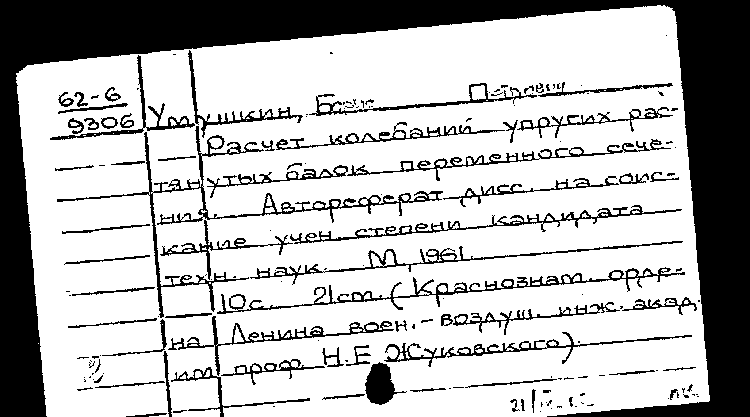 62-6
9306
Умушкин, Петрович
Расчет колебаний упругих рас-
тянутых балок переменного сече-
ния. Автореферат дисс. на соис-
кание учен. степени кандидата
техн. наук. М, 1961.
10с. 21см. (Краснознам. орде-
на Ленина воен.-воздуш. инж. акад.
им проф. Н.Е Жуковского)
2